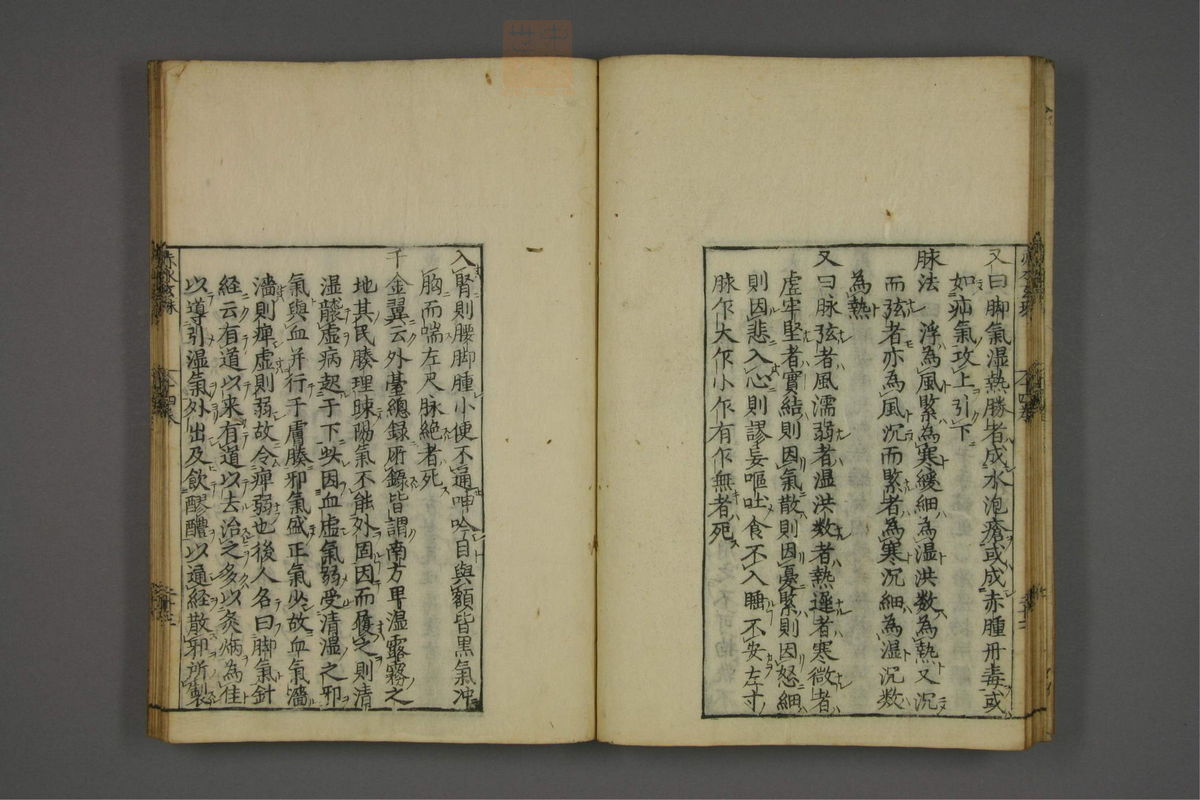 又曰脚氣湿熱勝者成水泡瘡或成赤腫丹毒或
如疝氣攻上引下
脉法 浮為風緊為寒緩細為湿洪数為熱又沉
而弦者亦為風沉而緊者為寒沉細為湿沉数
為熱
又曰脉弦者風濡弱者湿洪数者熱遲者寒微者
虚牢堅者實結則因氣散則因憂緊則因怒細
則因悲入心則謬妄嘔吐食不入睡不安左寸
脉乍大乍小乍有乍無者死
入腎則腰脚腫小便不通呻吟目與額皆黒氣冲
胸而喘左尺脉絶者死
千金翼云外䑓總録所錄皆謂南方卑湿露霧之
地其民腠理踈陽氣不能外固因而履之則清
湿襲虚病起于下此因血虚氣弱受清湿之邪
氣與血并行于膚腠邪氣盛正氣少故血氣濇
濇則痺虚則弱故令痺弱也後人名曰脚氣針
経云有道以来有道以去治之多以灸焫為佳
以導引湿氣外出及飲醪醴以通経散邪所製
四卷